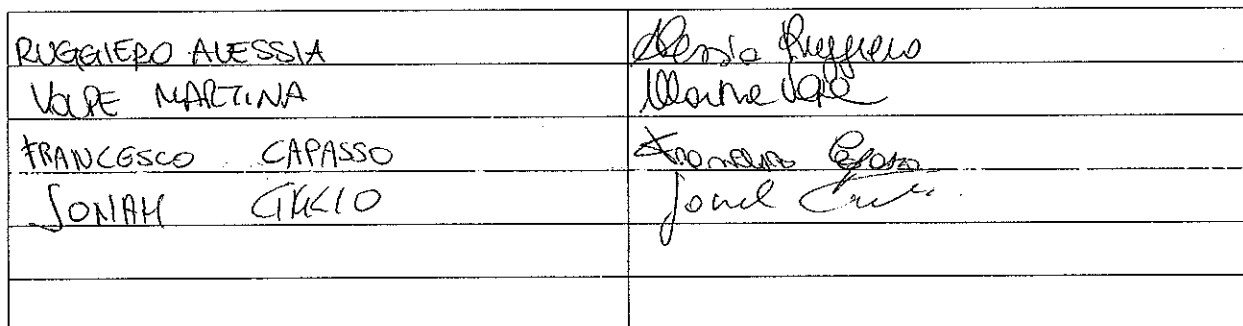 RUGGIERO ALESSIA Alessia Ruggiero
VOLPE MARTINA Martina Volpe
FRANCESCO CAPASSO Francesco Capasso
JONAH